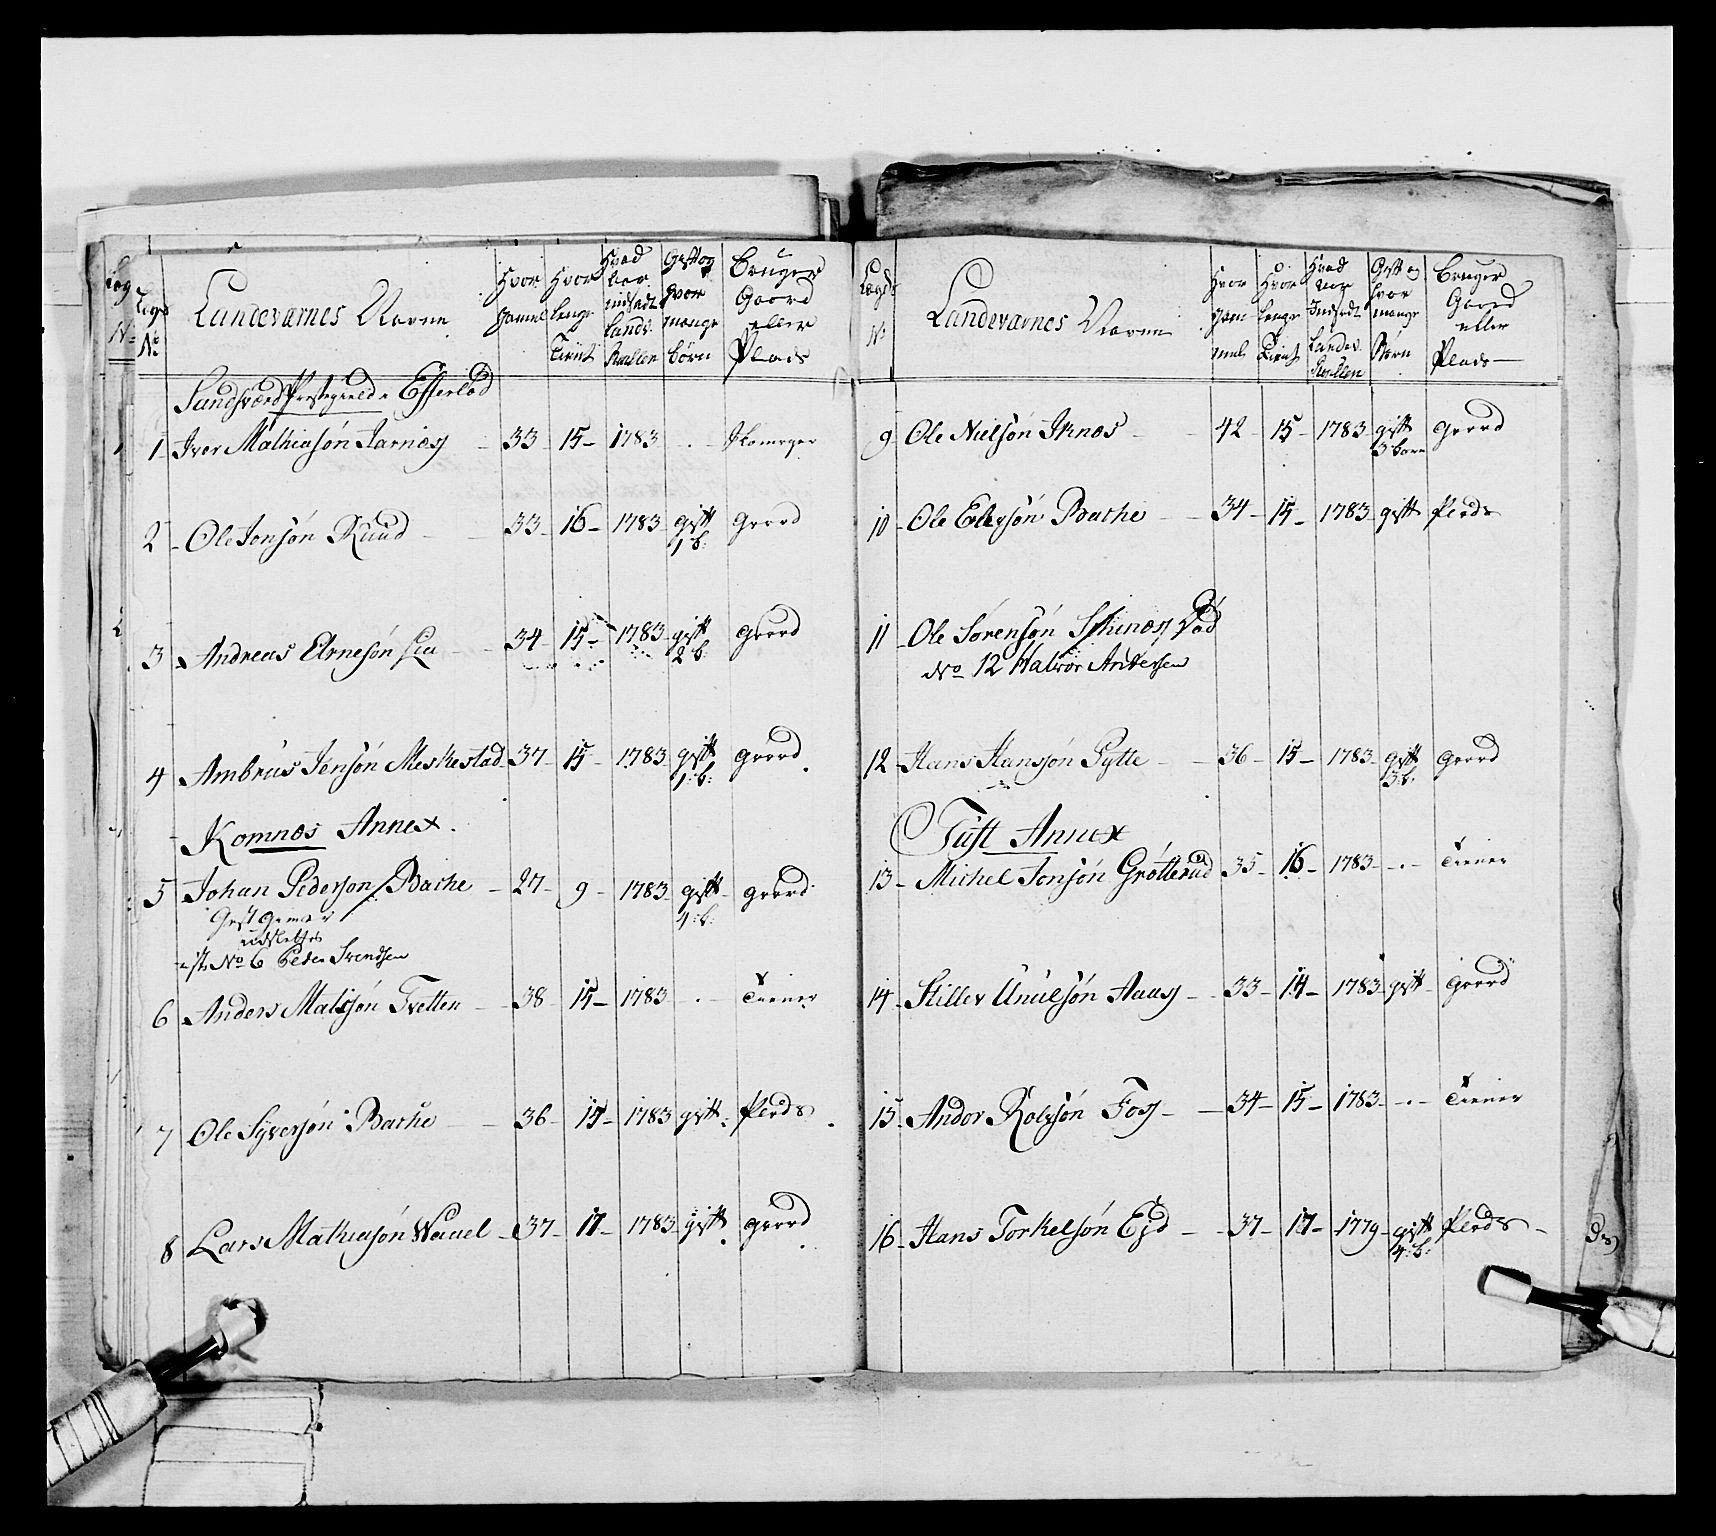 Legds No
Landevarnes Navne
Hvor gamel
Hvor lenge Tient
Hvad Aar indsadt Landv. Rullen
Gift og hvor mange børn
Bruger Gaard eller Plads
Sandsværd Præstegield Efterlød
1 Iver Mathiasön Jarnæs 33 15 1783 . Skomager
2 Ole Jonsön Ruud 33 16 1783 gift 1 b: gaard
3 Andreas Arnesön Lia 34 15 1783 gift 2 b: gaard
4 Ambrus Jensön Meskestad 37 15 1783 gift 1:b: gaard
Komnæs Annex.
5 Johan Pederson Bache 27 9 1783 gift 4:b: gaard
No 6 Peder Svendsen
6 Anders Matisön Tvetten 38 15 1783 . Tiener
7 Ole Syversön Bache 36 15 1783 gift Plads
8 Lars Mathiasön 37 17 1783 gift gaard
Lægds No
Landevarnes Navne
Hvor gammel
Hvor lenge Tient
Hvad Aar Indsadt Landev. Rullen
Gift og hvor mange Börn
Bruger Gaard eller Plads
9 Ole Nielsön Iknæs 42 15 1783 gift 3 born gaard
10 Ole Edersön Bache 34 15 1783 gift Plads
11 Ole Sörensön Skinæs Död
No 12 Halvor Andersen
12 Hans Hansjön Pytte 36 15 1783 gift 3:b. gaard
Tuft Annex
13 Michel Jonsön Grötterud 35 16 1783 . Tiener
14 Stiller Unulsön Aaas 33 14 1783 gift gaard
15 Andor Rolsjön Foss 34 15 1783 . Tiener
16 Hans Torkelsön Ejd 37 17 1779 gift 4:b: Plads